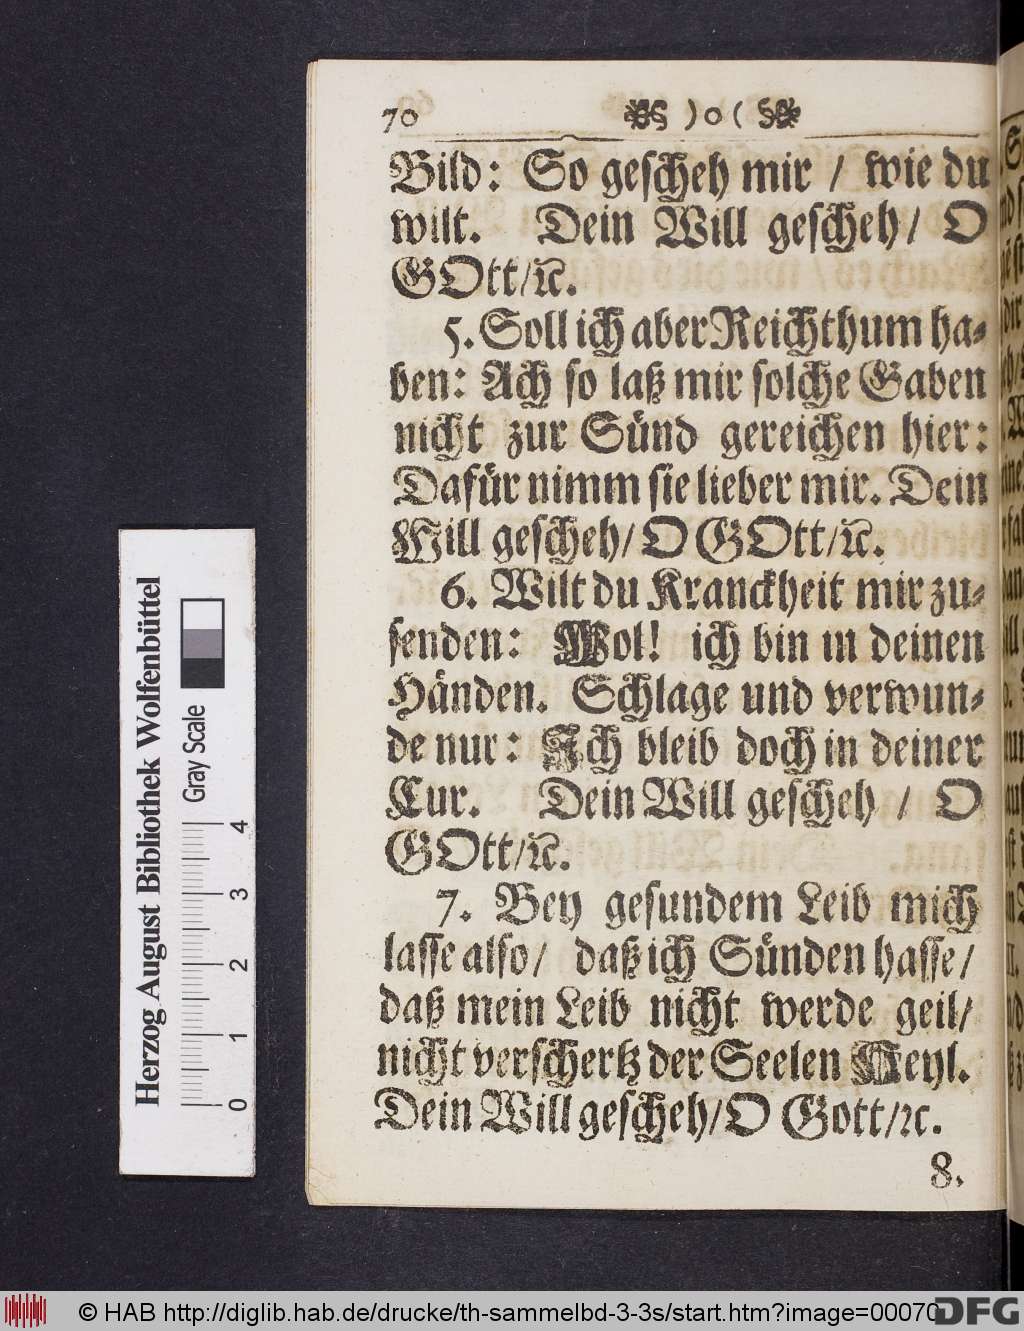 70 )o(
Bild: So gescheh mir / wie du
wilt. Dein Will gescheh/ O
GOtt/ꝛc.
5. Soll ich aber Reichthum ha-
ben: Ach so laß mir solche Gaben
nicht zur Sünd gereichen hier:
Dafür nimm sie lieber mir. Dein
Will gescheh/ O GOtt/ꝛc.
6. Wilt du Kranckheit mir zu-
senden: Wol! ich bin in deinen
Händen. Schlage und verwun-
de nur: Ich bleib doch in deiner
Cur. Dein Will gescheh / O
GOtt/ꝛc.
7. Bey gesundem Leib mich
lasse also/ daß ich Sünden hasse/
daß mein Leib nicht werde geil/
nicht verschertz der Seelen Heyl.
Dein Will gescheh/O Gott/ꝛc.
8.
Herzog August Bibliothek Wolfenbüttel
Gray Scale
0 1 2 3 4
© HAB http://diglib.hab.de/drucke/th-sammelbd-3-3s/start.htm?image=00070
DFG